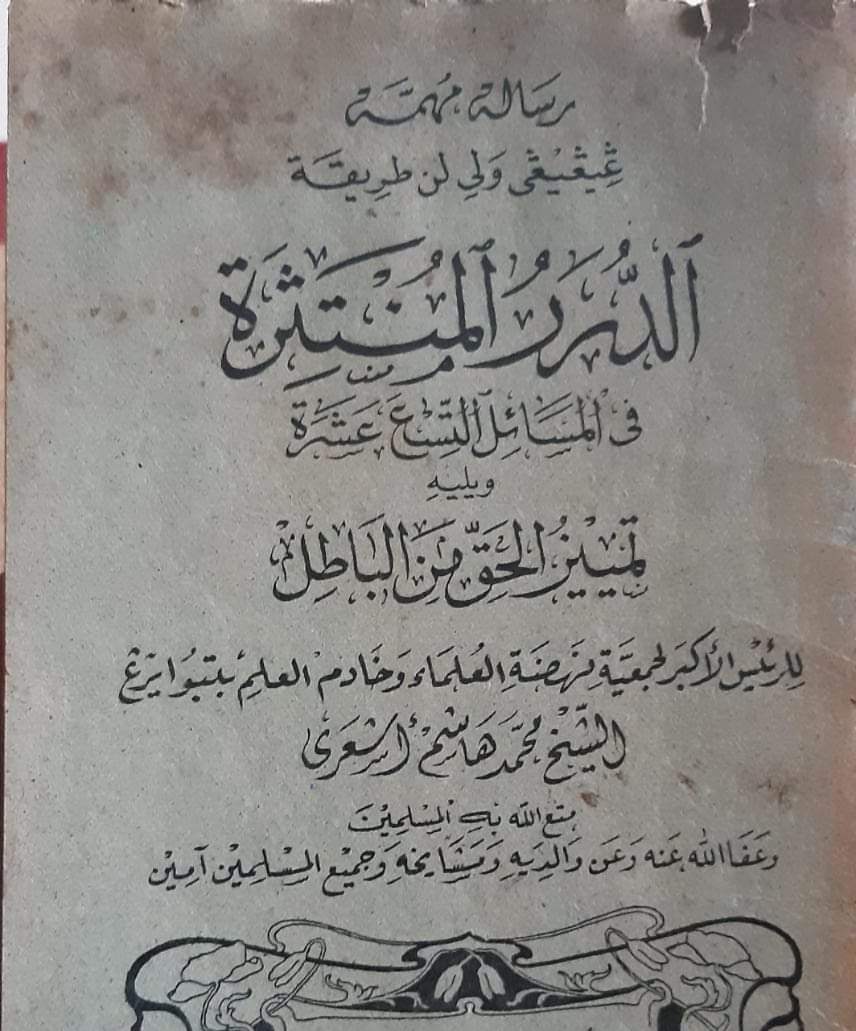 رِسَالَة مُهِمَّة
ڠِيڠيْڠى وَلِي لن طَرِيقَة
اَلدُّرَرُ الْمُنْتَثِرَة
فى الْمَسَائِلِ التِّسْعَ عَشَرَة
ويليهِ
تمْيِيْزُ الحَقِّ مِنَ البَاطِلِ
لِلرئيْسِ الأكبَرِ لجمعيَّةِ نَهضَةِ العُلمَاء وَخَادِمْ العلمِ بتبُوْايرَڠ
الشّيْخ محمّد هَاشِمْ أشعَرى
متع الله بهِ المسْلِمِيْنَ
وَعَفَا اللهُ عَنه وَعَن وَالِدِيهِ وَمَشَايخهِ وَجميْع المسْلِمِيْن آمِيْن